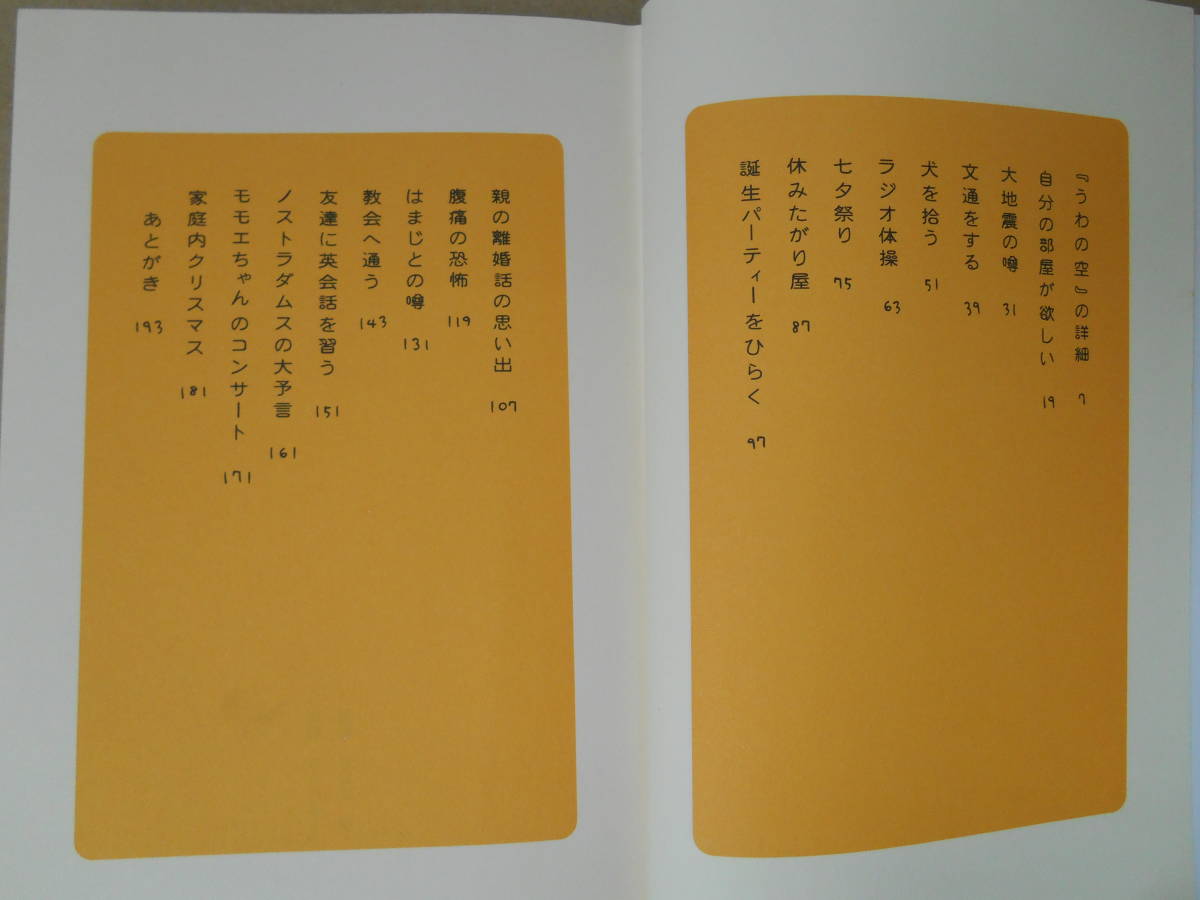 『うわの空』の詳細 7
自分の部屋が欲しい 19
大地震の噂 31
文通をする 39
犬を拾う 51
ラジオ体操 63
七夕祭り 75
休みたがり屋 87
誕生パーティーをひらく 97
親の離婚話の思い出 107
腹痛の恐怖 119
はまじとの噂 131
教会へ通う 143
友達に英会話を習う 151
ノストラダムスの大予言 161
モモエちゃんのコンサート 171
家庭内クリスマス 181
あとがき 193